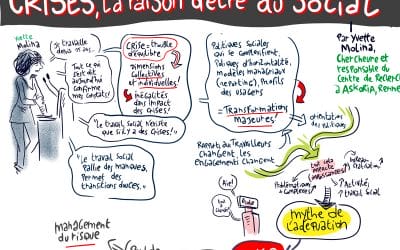 CRISES, la raison d'être du social
Par Yvette
Molina,
Chercheure et
responsable du
Centre de Recherche
à Askoria, Rennes
Yvette
Molina
Je travaille
depuis 15 ans...
Tout ce
qui sera
dit
aujourd'hui
confirme
mes constats!
CRISE = Trouble
d'équilibre
DIMENSIONS
COLLECTIVES
et individuelles!
INÉGALITÉS
DANS L'IMPACT
DES CRISES!
"Le travail social n'existe
que s'il y a des crises!"
"Le travail social
Pallie des manques,
Permet des
transitions douces."
Politiques sociales
qui se complexifient,
Politiques d'horizontalité,
modèles managériaux
(reporting), profils
des usagers
= Transformations
majeures
Orientation
des Politiques
Rapport au Travail/leurs
Changent, les
engagements changent
Problématiques
+ complexes
↑ Activité
↑ travail social
Aïe!
mythe de
l'adéquation
management
du risque